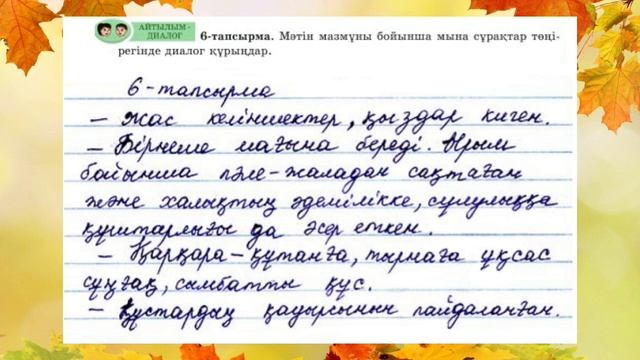 АЙТЫЛЫМ - ДИАЛОГ
6-тапсырма. Мәтін мазмұны бойынша мына сұрақтар төңі-
регінде диалог құрыңдар.
6-тапсырма
– Жас келіншектер, қыздар киген.
– Бірнеше мағына береді. Ырым
бойынша пәле-жаладан сақтаған
және халықтың әдемілікке, сұлулыққа
құштарлығы да әсер еткен.
– Қарқара – құтанға, тырнаға ұқсас
сұңғақ, сымбатты құс.
– Құстардың қауырсынын пайдаланған.